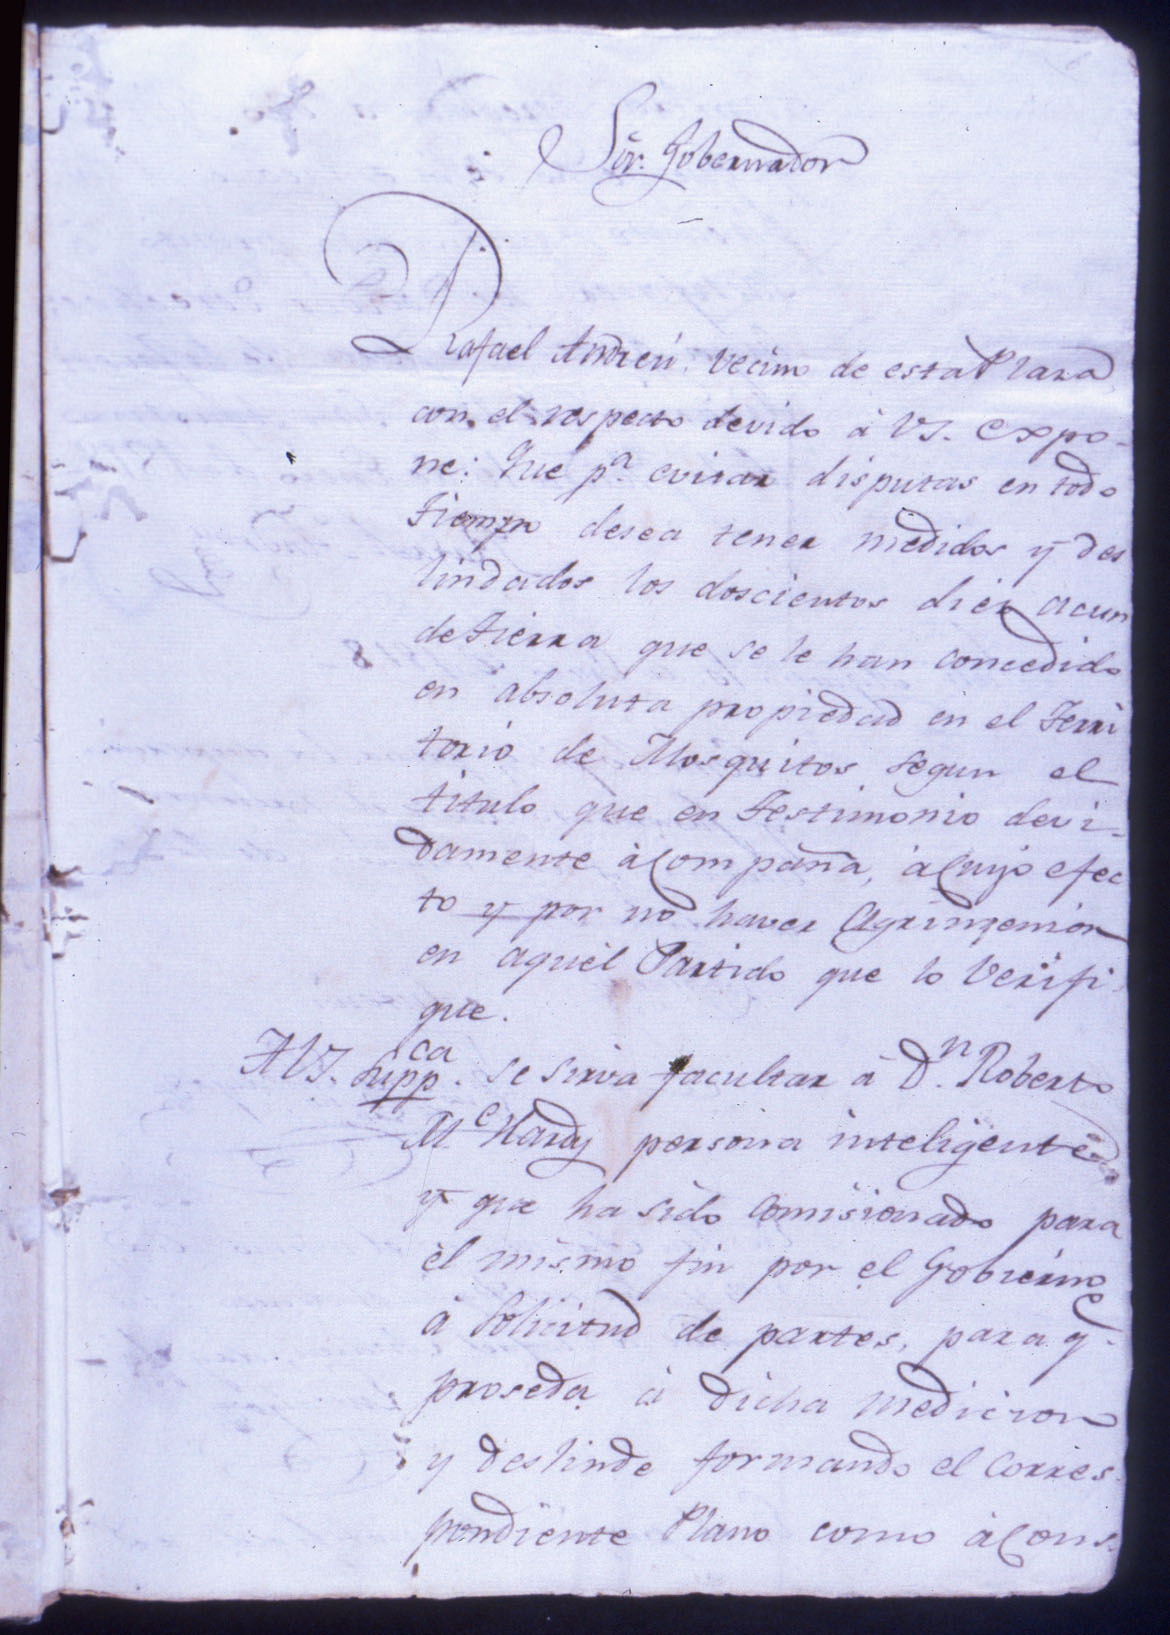 Sōr. Gobernador
Rafael Andreú vecino de esta Plaza
con el respecto devido à VS. expo-
ne: Que pª. evitar disputas en todo
tiempo desea tener medidos y des
lindados los doscientos diez acres
de Tierra que se le han concedido
en absoluta propiedad en el Terri
torio de Mosquitos segun el
titulo que en Testimonio devi-
damente àcompaña, à cuyo efec
to y por no haver Agrimensor
en aquel Partido que lo Verifi
que.
A VS. suppᶜᵃ. se sirva facultar à Dⁿ. Roberto
Mᶜ Hardy persona inteligente
y que ha sido Comisionado para
el mismo fin por el Gobierno
à Solicitud de partes, para qᵉ.
proseda à dicha medicion
y deslinde formando el corres-
pondiente Plano como à Cons-